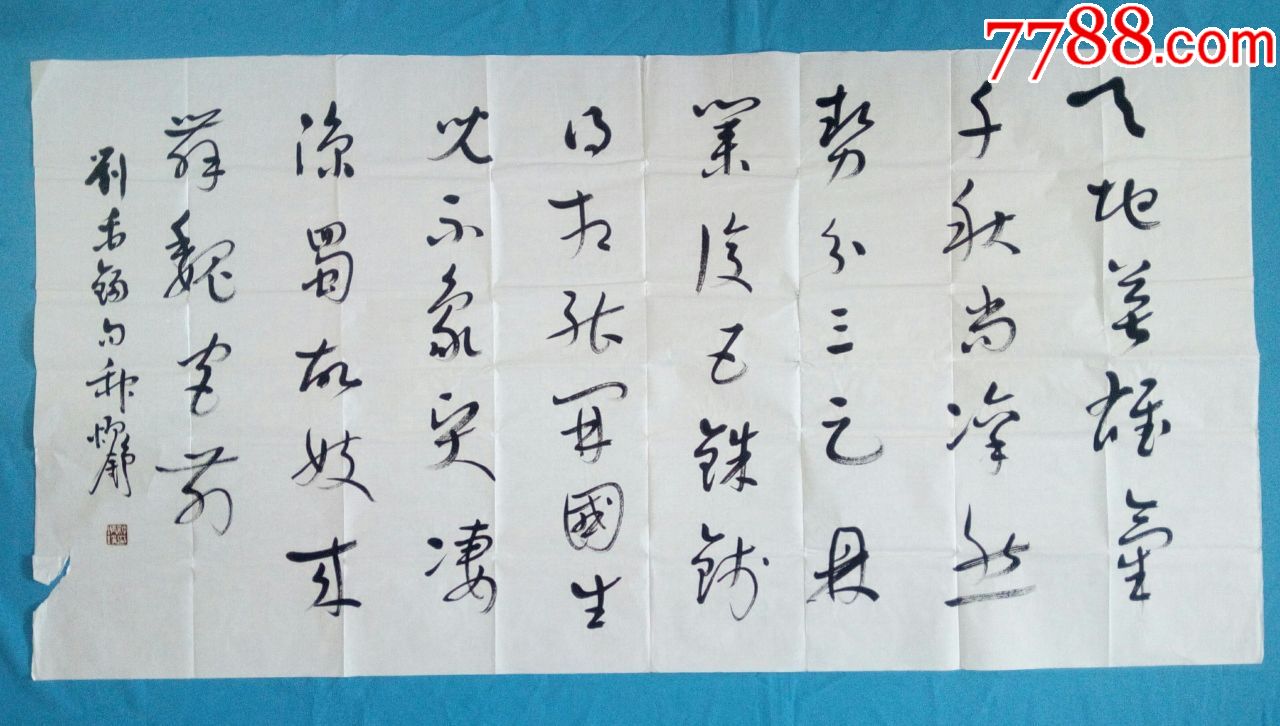 7788.com
天地英雄氣
千秋尚凜然
勢分三足鼎
業復五銖錢
得相能開國生
兒不象賢凄
涼蜀故妓來
舞魏宮前
劉禹錫句